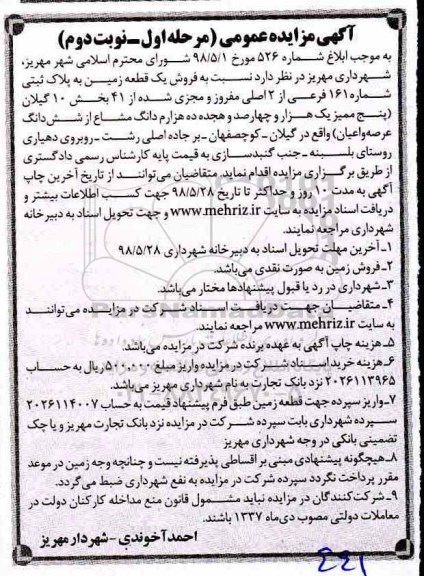 آگهی مزایده عمومی (مرحله اول ـ نوبت دوم)
به موجب ابلاغ شماره ۵۲۶ مورخ ۹۸/۵/۱ شورای محترم اسلامی شهر مهریز،
شهرداری مهریز در نظر دارد نسبت به فروش یک قطعه زمین به پلاک ثبتی
شماره ۱۶۱ فرعی از ۲ اصلی مفروز و مجزی شده از ۴۱ بخش ۱۰ گیلان
(پنج ممیز یک هزار و چهارصد و هجده ده هزارم دانگ مشاع از شش دانگ
عرصه واعیان) واقع در گیلان - کوچصفهان - بر جاده اصلی رشت - روبروی دهیاری
روستای بلسبنه - جنب گنبدسازی به قیمت پایه کارشناس رسمی دادگستری
از طریق برگزاری مزایده اقدام نماید. متقاضیان می‌توانند از تاریخ آخرین چاپ
آگهی به مدت ۱۰ روز و حداکثر تا تاریخ ۹۸/۵/۲۸ جهت کسب اطلاعات بیشتر و
دریافت اسناد مزایده به سایت www.mehriz.ir و جهت تحویل اسناد به دبیرخانه
شهرداری مراجعه نمایند.
۱ـ آخرین مهلت تحویل اسناد به دبیرخانه شهرداری ۹۸/۵/۲۸
۲ـ فروش زمین به صورت نقدی می‌باشد.
۳ـ شهرداری در رد یا قبول پیشنهادها مختار می‌باشد.
۴ـ متقاضیان جهت دریافت اسناد شرکت در مزایده می‌توانند
به سایت www.mehriz.ir مراجعه نمایند.
۵ـ هزینه چاپ آگهی به عهده برنده شرکت در مزایده می‌باشد.
۶ـ هزینه خرید اسناد شرکت در مزایده واریز مبلغ ۵۰۰,۰۰۰ ریال به حساب
۲۰۲۶۱۱۳۹۶۵ نزد بانک تجارت به نام شهرداری مهریز می‌باشد.
۷ـ واریز سپرده جهت قطعه زمین طبق فرم پیشنهاد قیمت به حساب ۲۰۲۶۱۱۴۰۰۷
سپرده شهرداری بابت سپرده شرکت در مزایده نزد بانک تجارت مهریز و یا چک
تضمینی بانکی در وجه شهرداری مهریز
۸ـ هیچگونه پیشنهادی مبنی بر اقساطی پذیرفته نیست و چنانچه وجه زمین در موعد
مقرر پرداخت نگردد سپرده شرکت در مزایده به نفع شهرداری ضبط می‌گردد.
۹ـ شرکت‌کنندگان در مزایده نباید مشمول قانون منع مداخله کارکنان دولت در
معاملات دولتی مصوب دی‌ماه ۱۳۳۷ باشند.
احمد آخوندی - شهردار مهریز
۲۲۱